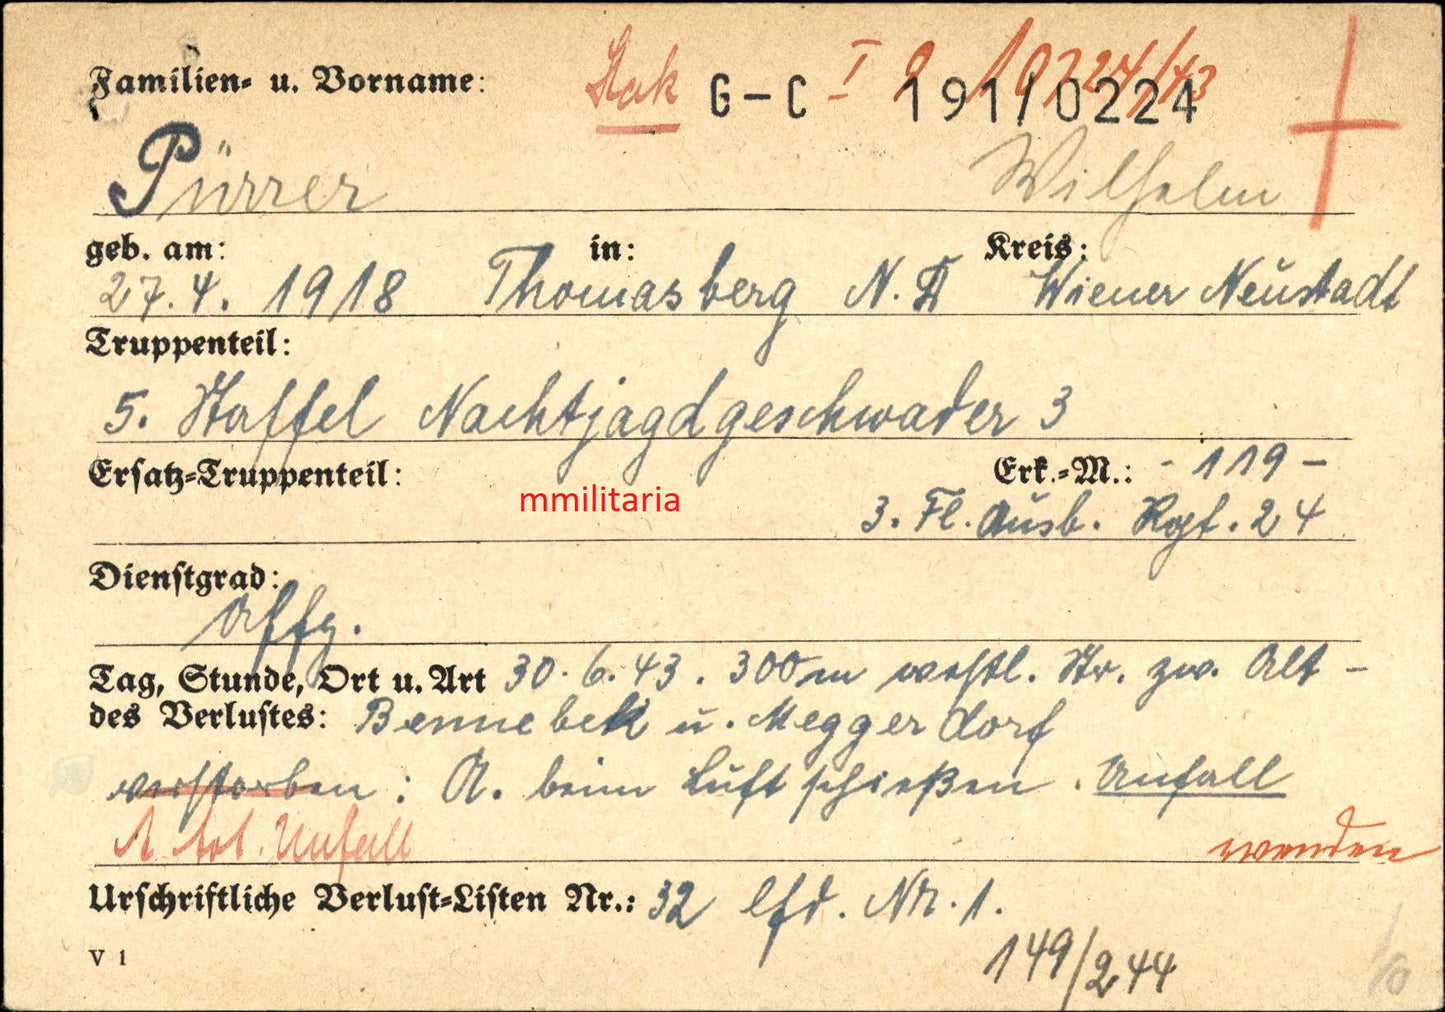 Familien- u. Vorname: Stak G-C 191/0224
Pürrer Wilhelm
geb. am: in: Kreis:
27.4.1918 Thomasberg N.D Wiener Neustadt
Truppenteil:
5. Staffel Nachtjagdgeschwader 3
Ersatz-Truppenteil: Erk.-M.: -119-
mmilitaria
3. Fl. Ausb. Rgt. 24
Dienstgrad:
Offz.
Tag, Stunde, Ort u. Art 30.6.43. 300m westl. Str. zw. Alt-
des Verlustes: Bennebek u. Meggerdorf
verstorben: A. beim Luftschießen. Unfall
A tot. Unfall wenden
Urschriftliche Verlust-Listen Nr.: 32 lfd. Nr. 1.
V 1 149/244